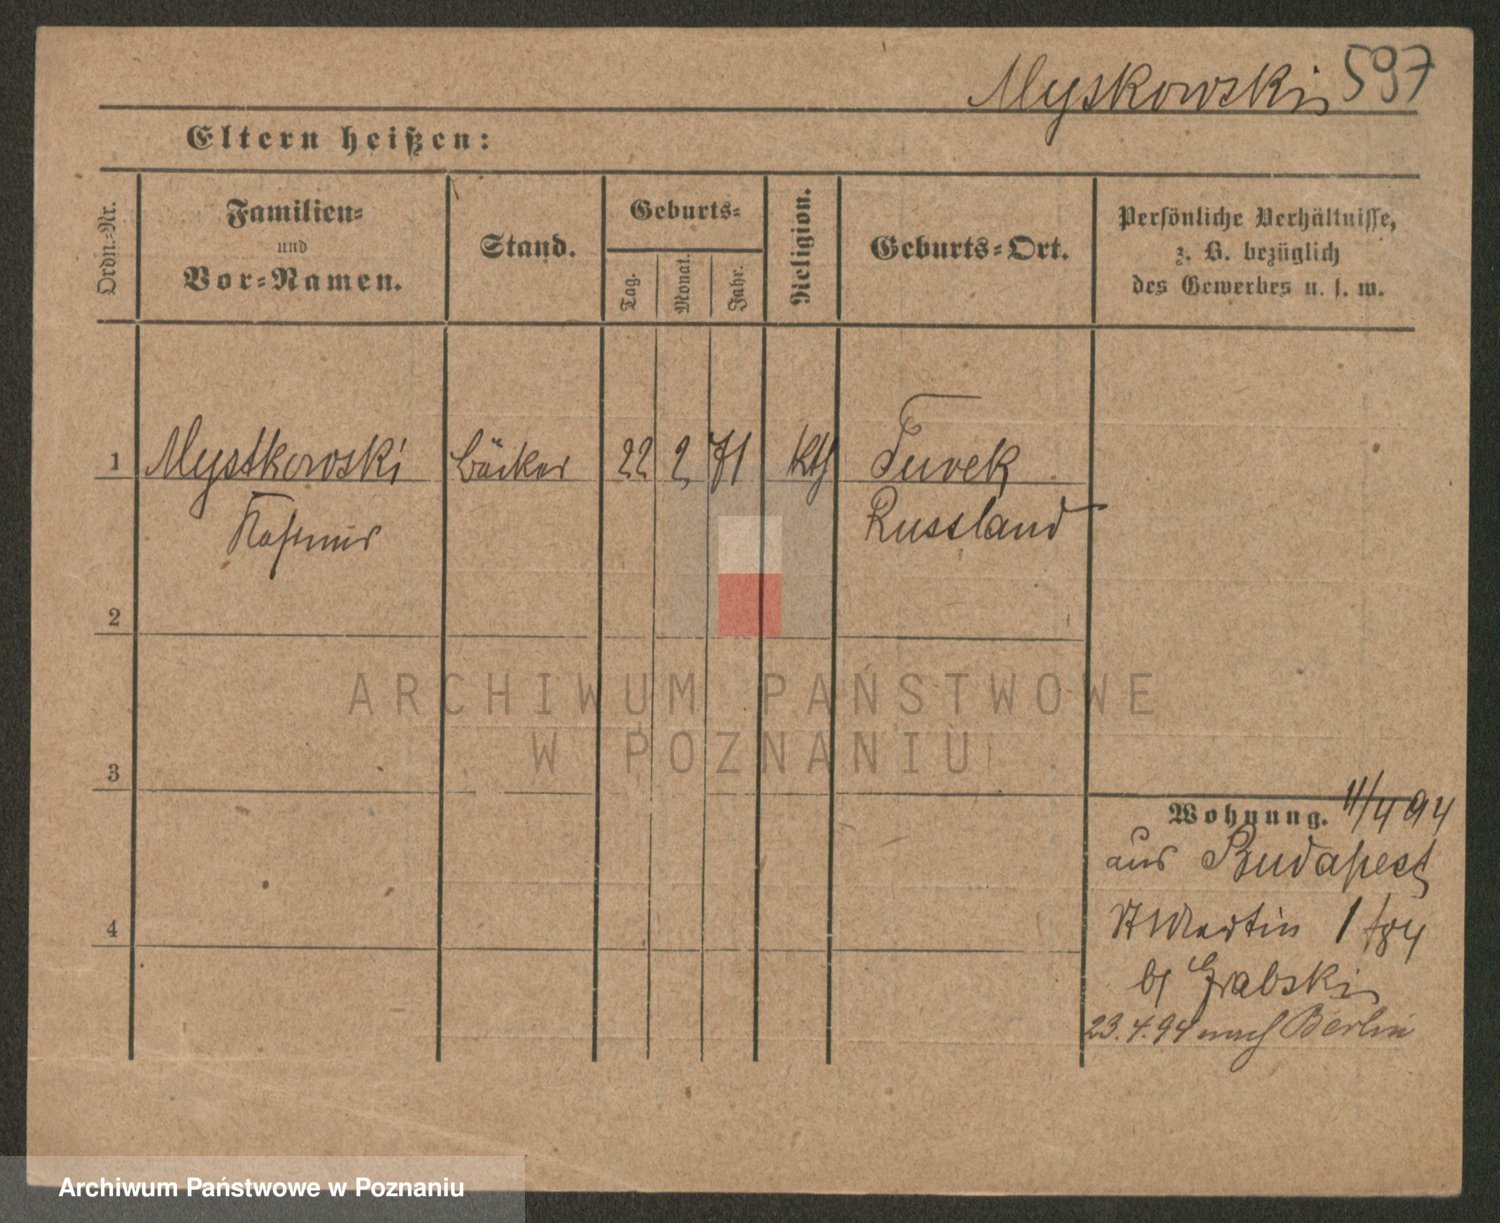 Myskowski 597
Eltern heißen:
Ordn.-Nr.
Familien-
und
Vor-Namen.
Stand.
Geburts-
Tag.
Monat.
Jahr.
Religion.
Geburts-Ort.
Persönliche Verhältnisse,
z. B. bezüglich
des Gewerbes u. s. w.
1 Mystkowski Bäcker 22 2 71 kth Turek
Kasimir Russland
2
3
4
Wohnung. 11/4 94
aus Budapest
St Martin 1
b/ Grabski
23.4.94 nach Berlin
ARCHIWUM PAŃSTWOWE
W POZNANIU
Archiwum Państwowe w Poznaniu